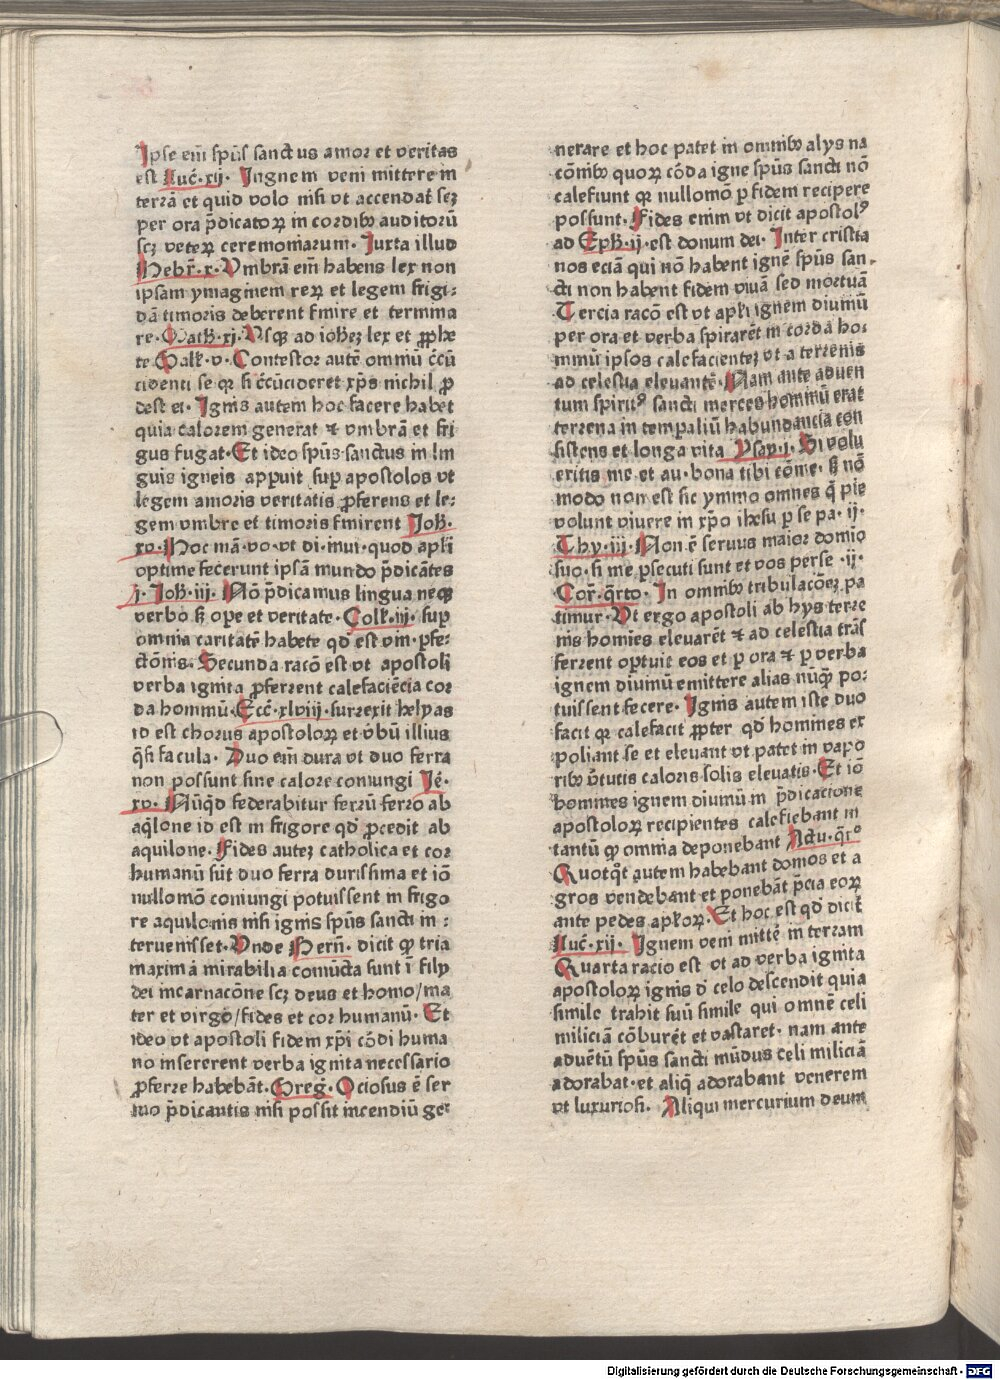 Ipse em̄ spūs sanctus amor et veritas
est Luc̄·xij· Ingnem veni mittere in
terrā et quid volo nisi vt accendat̄ scꝫ
per ora p̄dicatoꝝ in cordibꝰ auditorū
scꝫ veteꝝ ceremoniarum· Iuxta illud
Hebr̄·x· Vmbrā em̄ habens lex non
ipsam ymaginem reꝝ et legem frigi:
dā timoris deberent finire et termina
re· Math̄·xj· Vsqꝫ ad ioheꝫ lex et ꝓphe
te Gall̄·v· Contestor autē omnū c̄cū
cidenti se qꝛ si c̄cūcideret xp̄s nichil ꝓ
dest ei· Ignis autem hoc facere habet
quia calorem generat ⁊ vmbrā et fri
gus fugat· Et ideo spūs sanctus in lin
guis igneis apꝑuit suꝑ apostolos vt
legem amoris veritatis ꝓferens et le:
gem vmbre et timoris finirent Joh̄·
xv· Hoc mā·vo·vt di·inui·quod apl̄i
optime fecerunt ipsā mundo p̄dicātes
j· Joh̄·iii· Nō p̄dicamus lingua neqꝫ
verbo sꝫ oꝑe et veritate· Coll̄·iij· suꝑ
omnia caritatē habete qd̄ est vin·ꝑfe:
ctōnis· Secunda racō est vt apostoli
verba ignita ꝓferrent calefaciēcia coꝛ
da hominū· Ecc̄·xlviij· surrexit helyas
id est chorus apostoloꝝ et v̄bū illius
q̄si facula· Duo em̄ dura vt duo ferra
non possunt sine calore coniungi Je·
xv· Nūqd̄ federabitur ferrū ferro ab
aq̄lone id est in frigore qd̄ ꝓcedit ab
aquilone· Fides auteꝫ catholica et coꝛ
humanū sūt duo ferra durissima et iō
nullomō coniungi potuissent in frigo
re aquilonis nisi ignis spūs sancti in:
teruenisset· Vnde Bern̄· dicit qꝙ tria
maxima mirabilia coniūcta sunt ī filij
dei incarnacōne scꝫ deus et homo/ma
ter et virgo/fides et cor humanū· Et
ideo vt apostoli fidem xp̄i cōdi huma
no insererent verba ignita necessario
ꝓferre habebāt· Greḡ· Ociosus ē ser
mo p̄dicantis nisi possit incendiū ge
nerare et hoc patet in omnibꝰ alijs na
cōnibꝰ quoꝝ cōda igne spūs sancti nō
calefiunt qꝛ nullomō ꝑ fidem recipere
possunt· Fides enim vt dicit apostolꝰ
ad Eph̄·ij· est donum dei· Inter cristia
nos eciā qui nō habent ignē spūs san-
cti non habent fidem viuā sed mortuā
Tercia racō est vt apl̄i ignem diuinū
per ora et verba spirarēt in corda ho:
minū ipsos calefacienteꝫ vt a terrenis
ad celestia eleuantē· Nam ante aduen
tum spiritꝰ sancti merces hominū erat
terrena in temꝑaliū habundancia con
sistens et longa vita Ysay·j· Si volu
eritis me et au·bona tibi cōme· sꝫ nō
modo non est sic ymmo omnes q̄ pie
volunt viuere in xp̄o ihesu ꝑ se pa· ij·
Thy·iij· Non ē seruus maior domio
suo· si me ꝑsecuti sunt et vos perse ·ij·
Cor̄·q̄rto· In omnibꝰ tribulacōeꝫ pa
timur· Vt ergo apostoli ab hys terre
nis homīes eleuarēt ⁊ ad celestia trās
ferrent oꝑtuit eos et ꝑ ora ⁊ ꝑ verba
ignem diuinū emittere alias nūqꝫ po:
tuissent fecere· Ignis autem iste duo
facit qꝛ calefacit ꝓpter qd̄ homines ex
poliant se et eleuant vt patet in vapo
ribꝰ v̄tutis caloris solis eleuatis· Et iō
homines ignem diuinū in p̄dicacione
apostoloꝝ recipientes calefiebant in
tantū qꝙ omnia deponebant Actu·q̄rᵒ
Quotqꝫt autem habebant domos et a
gros vendebant et ponebāt p̄cia eoꝝ
ante pedes apl̄oꝝ· Et hoc est qd̄ dicit
Luc̄·xij· Ignem veni mittē in terram
Quarta racio est vt ad verba ignita
apostoloꝝ ignis d̄ celo descendit quia
simile trahit suū simile qui omnē celi
miliciā cōburēt et vastaret· nam ante
aduētū spūs sancti mūdus celi miliciā
adorabat· et aliq̄ adorabant venerem
vt luxuriosi· Aliqui mercurium deum
Digitalisierung gefördert durch die Deutsche Forschungsgemeinschaft - DFG